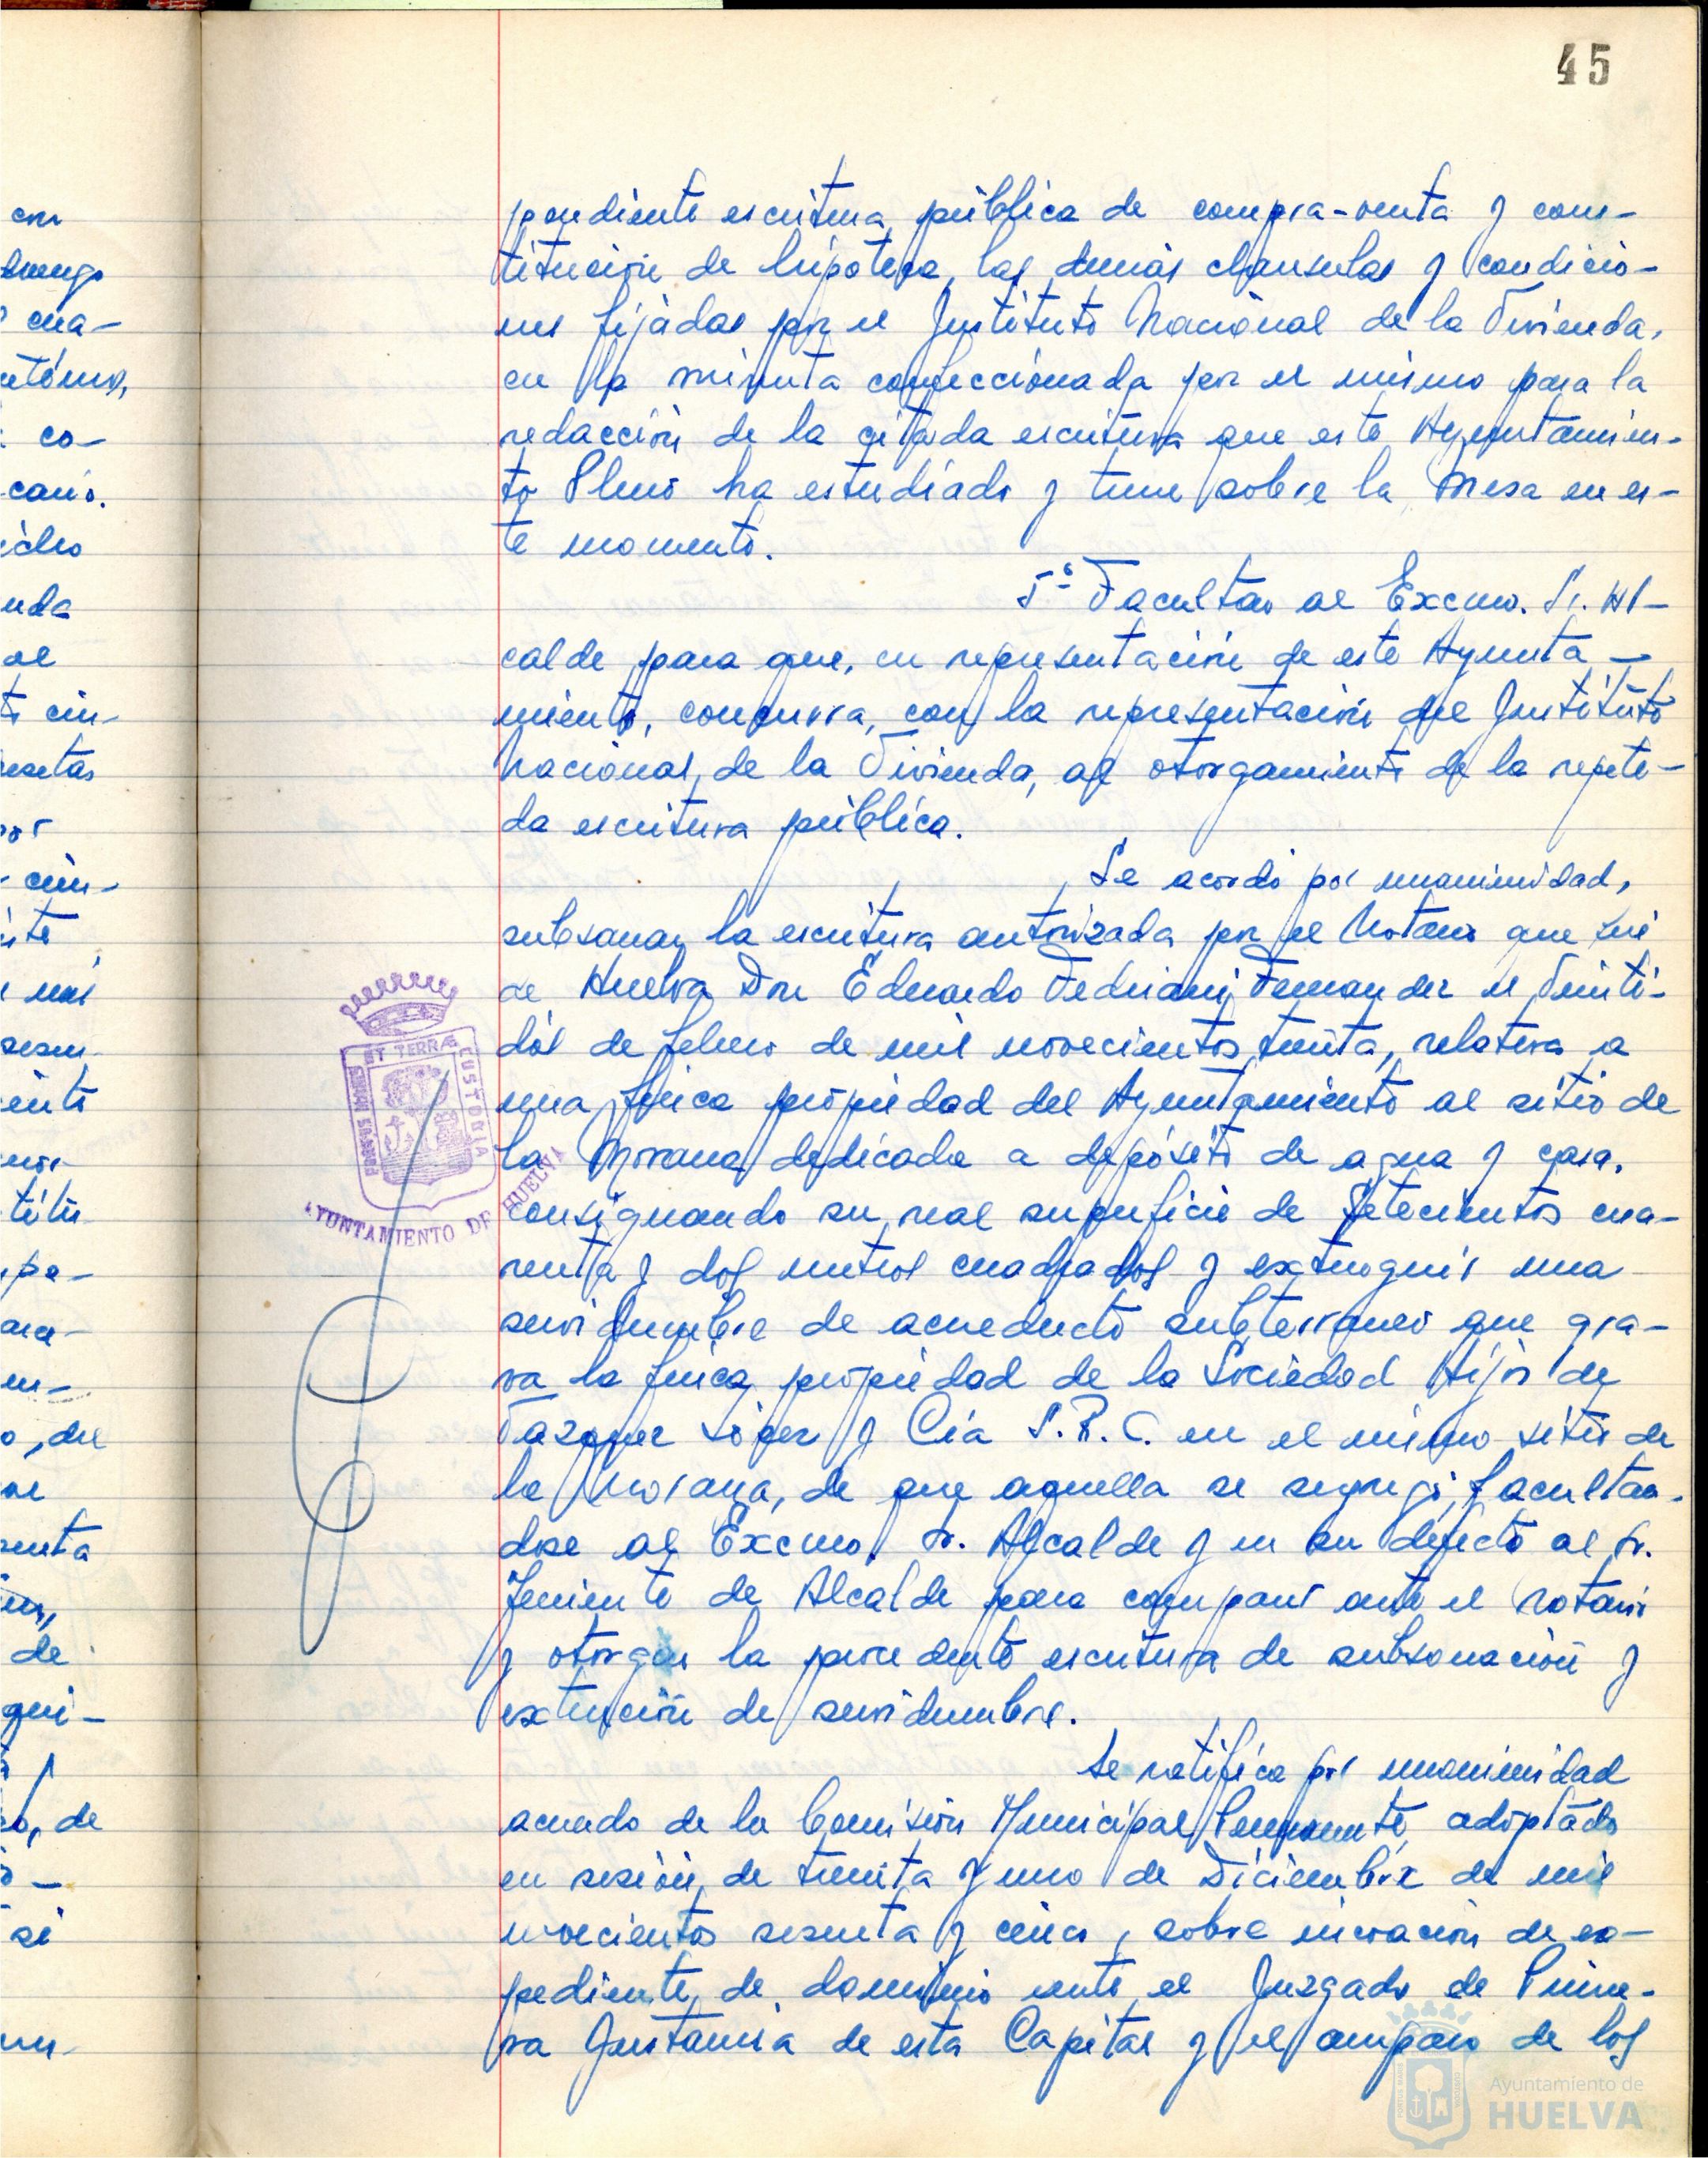 45
pondiente escritura pública de compra-venta y cons-
titución de hipoteca, las demás clausulas y condicio-
nes fijadas por el Instituto Nacional de la Vivienda,
en la minuta confeccionada por el mismo para la
redacción de la citada escritura que este Ayuntamien-
to Pleno ha estudiado y tiene sobre la Mesa en es-
te momento.
5º Facultar al Excmo. Sr. Al-
calde para que, en representación de este Ayunta-
miento, concurra, con la representación del Instituto
Nacional de la Vivienda, al otorgamiento de la repeti-
da escritura pública.
Se acordó por unanimidad,
subsanar la escritura autorizada por el Notario que fué
de Huelva Don Eduardo Fedriani Fernandez el Veinti-
dós de febrero de mil novecientos treinta, relativa a
una finca propiedad del Ayuntamiento al sitio de
la Morana dedicada a depósito de agua y casa,
consignando su real superficie de Setecientos cua-
renta y dos metros cuadrados y extinguir una
servidumbre de acueducto subterraneo que gra-
va la finca propiedad de la Sociedad Hijos de
Vazquez López y Cía S.R.C. en el mismo sitio de
la Morana, de que aquella se segregó, facultan-
dose al Excmo. Sr. Alcalde y en su defecto al Sr.
Teniente de Alcalde para comparecer ante el Notario
y otorgar la procedente escritura de subsanación y
extinción de servidumbre.
Se ratifica por unanimidad
acuerdo de la Comisión Municipal Permanente, adoptado
en sesión de treinta y uno de Diciembre de mil
novecientos sesenta y cinco, sobre incoación de ex-
pediente de dominio ante el Juzgado de Prime-
ra Instancia de esta Capital y al amparo de los
PORTUS MARIS
ET TERRÆ
CUSTODIA
AYUNTAMIENTO DE HUELVA
Ayuntamiento de
HUELVA